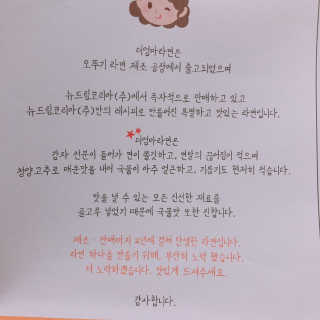 더엄마라면은
오뚜기 라면 제조 공장에서 출고되었으며
뉴드림코리아(주)에서 독자적으로 판매하고 있고
뉴드림코리아(주)만의 레시피로 만들어진 특별하고 맛있는 라면입니다.
더엄마라면은
감자 전분이 들어가 면이 쫄깃하고, 면발의 끊어짐이 적으며
청양고추로 매운맛을 내어 국물이 아주 얼큰하고, 기름기도 현저히 적습니다.
맛을 낼 수 있는 모든 신선한 재료를
골고루 넣었기 때문에 국물맛 또한 진합니다.
제조·판매까지 2년에 걸쳐 탄생한 라면입니다.
라면 하나를 만들기 위해, 부단히 노력 했습니다.
더 노력하겠습니다. 맛있게 드셔주세요.
감사합니다.